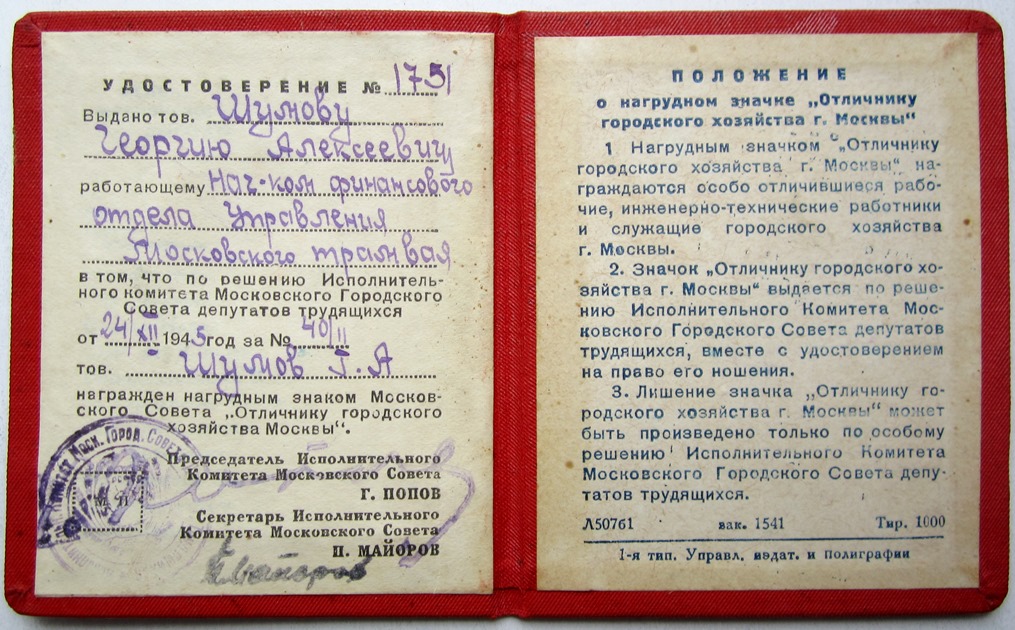 УДОСТОВЕРЕНИЕ № 1751
Выдано тов. Шумову
Георгию Алексеевичу
работающему нач-ком финансового
отдела Управления
Московского трамвая
в том, что по решению Исполнитель-
ного комитета Московского Городского
Совета депутатов трудящихся
от 24/XII 1945 год за № 40/II
тов. Шумов Г. А
награжден нагрудным знаком Москов-
ского Совета „Отличнику городского
хозяйства Москвы“.
Председатель Исполнительного
Комитета Московского Совета
Г. ПОПОВ
Секретарь Исполнительного
Комитета Московского Совета
П. МАЙОРОВ
Майоров
Моск. Город. Совет
М П
ПОЛОЖЕНИЕ
о нагрудном значке „Отличнику
городского хозяйства г. Москвы“
1 Нагрудным значком „Отличнику
городского хозяйства г. Москвы“ на-
граждаются особо отличившиеся рабо-
чие, инженерно-технические работники
и служащие городского хозяйства
г. Москвы.
2. Значок „Отличнику городского хо-
зяйства г. Москвы“ выдается по реше-
нию Исполнительного Комитета Мос-
ковского Городского Совета депутатов
трудящихся, вместе с удостоверением
на право его ношения.
3. Лишение значка „Отличнику го-
родского хозяйства г. Москвы“ может
быть произведено только по особому
решению Исполнительного Комитета
Московского Городского Совета депу-
татов трудящихся.
Л50761 зак. 1541 Тир. 1000
1-я тип. Управл. издат. и полиграфии